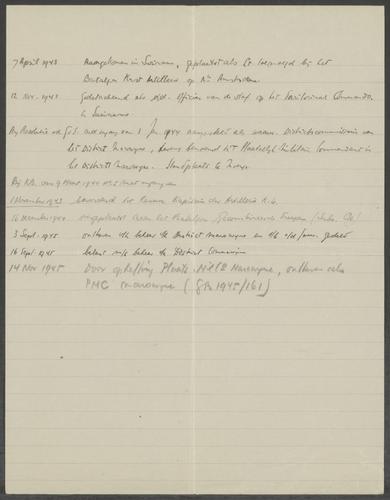 7 April 1943 Aangekomen in Suriname, geplaatst als 2e toegevoegd bij het
Bataljon Kust Artillerie op Nw. Amsterdam
12 Nov. 1943 Gedetacheerd als Officier van de staf op het Territoriaal Commando
in Suriname
Bij Resolutie v.d. Gvt. van 1 Jan 1944 aangesteld als waarn. Districtscommissaris van
het District Marowijne, tevens benoemd tot Plaatselijk Militair Commandant in
het District Marowijne. Standplaats te
Bij K.B. van 9 Maart 1944 No. 5 met ingang van
1 November 1943 bevorderd tot Reserve Kapitein der Artillerie K.L.
16 December 1944 overgeplaatst naar het Bataljon Gecombineerde Troepen
3 Sept. 1945 ontheven v/h beheer v/h District Marowijne
16 Sept. 1945 belast m/h beheer v/h District Commewijne
14 Nov 1945 Door opheffing Plaats. Mil. Marowijne, ontheven als
PMC Marowijne (GB 1945/161)